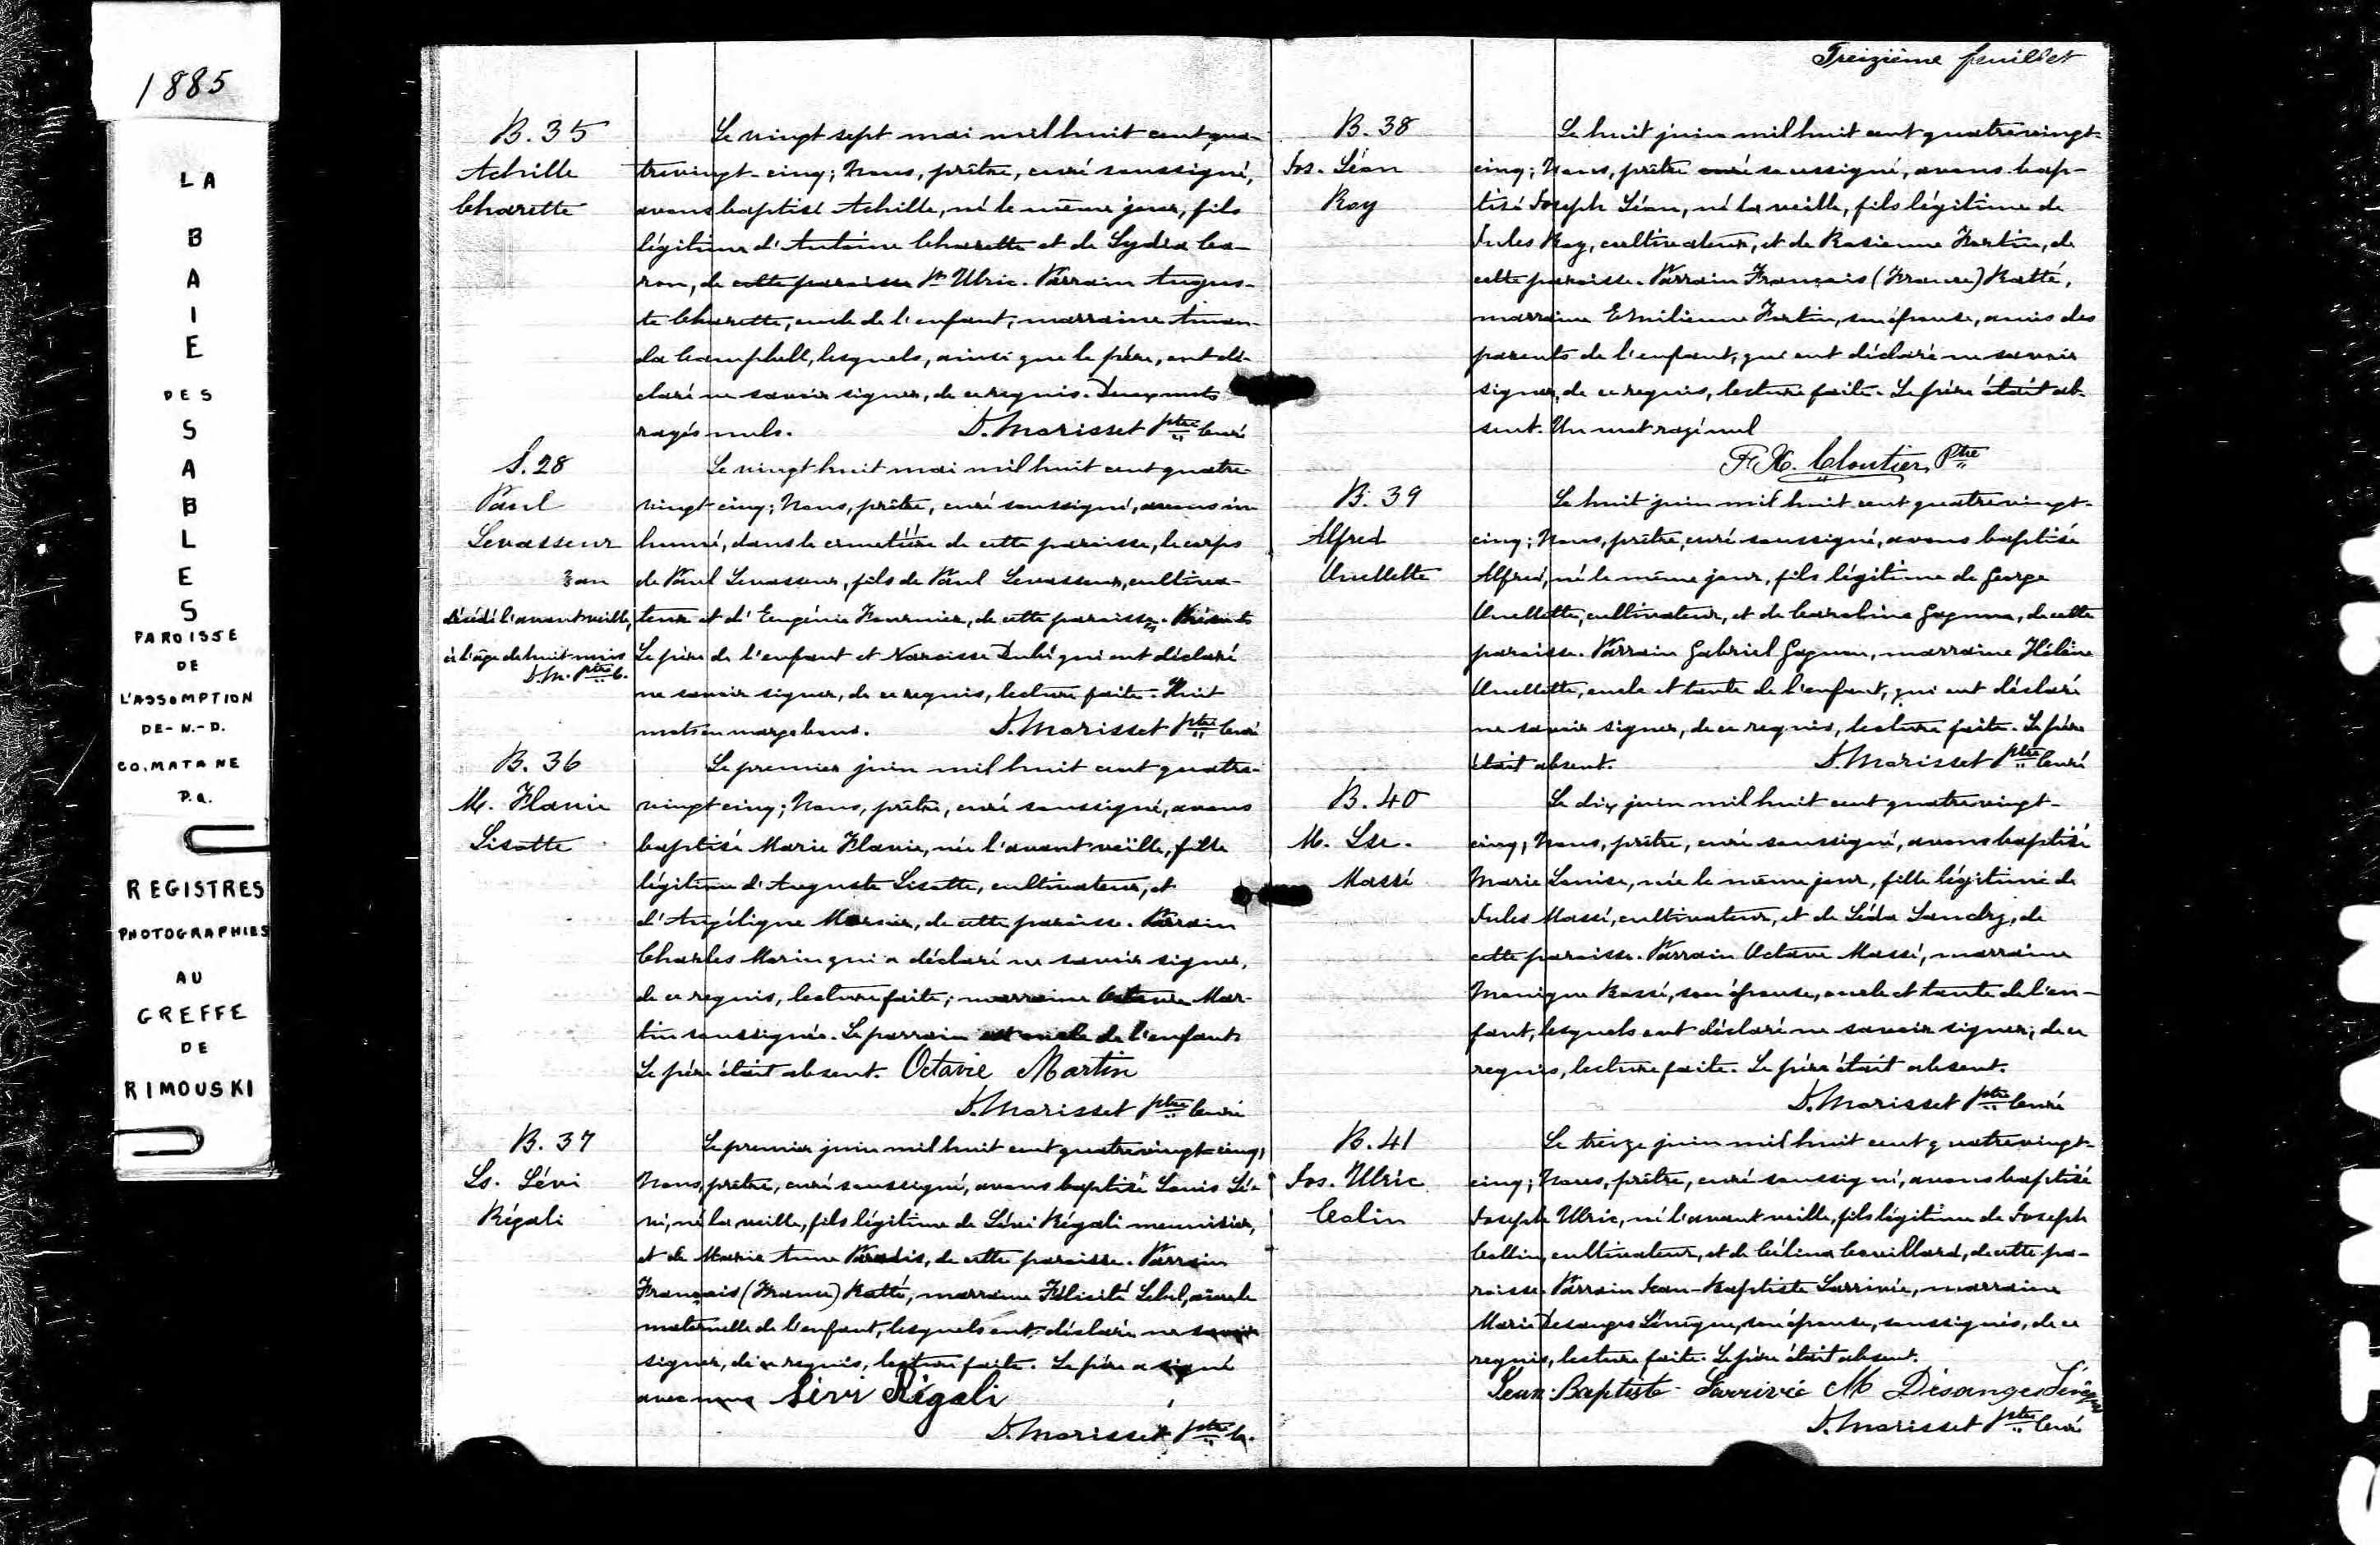 1885
LA
BAIE
DES
SABLES
PAROISSE
DE
L'ASSOMPTION
DE-N.-D.
CO. MATANE
P.Q.
REGISTRES
PHOTOGRAPHIES
AU
GREFFE
DE
RIMOUSKI
B. 35
Achille
Charette
Le vingt sept mai mil huit cent qua-
trevingt-cinq; Nous, prêtre, curé soussigné,
avons baptisé Achille, né le même jour, fils
légitime d'Antoine Charette et de Lydia Ca-
ron, de cette paroisse St Ulric. Parrain Augus-
te Charette, oncle de l'enfant, marraine Aman-
da Campbell, lesquels, ainsi que le père, ont dé-
claré ne savoir signer, de ce requis. Deux mots
rayés nuls. D. Morisset Ptre Curé
S. 28
Paul
Levasseur
décédé l'avant veille,
à l'âge de huit mois
D.M. Ptre C.
Le vingt huit mai mil huit cent quatre-
vingt-cinq; Nous, prêtre, curé soussigné, avons in
humé, dans le cimetière de cette paroisse, le corps
de Paul Levasseur, fils de Paul Levasseur, cultiva-
teur et d'Eugénie Fournier, de cette paroisse. Présents
Le père de l'enfant et Narcisse Dubé qui ont déclaré
ne savoir signer, de ce requis, lecture faite. Huit
mots en marge bons. D. Morisset Ptre Curé
B. 36
M. Flavie
Lisotte
Le premier juin mil huit cent quatre-
vingt cinq; Nous, prêtre, curé soussigné, avons
baptisé Marie Flavie, née l'avant veille, fille
légitime d'Auguste Lisotte, cultivateur, et
d'Angélique Mercier, de cette paroisse. Parrain
Charles Morin qui a déclaré ne savoir signer,
de ce requis, lecture faite; marraine Octavie Mar-
tin soussignée. Le parrain est oncle de l'enfant
Le père était absent. Octavie Martin
D. Morisset Ptre Curé
B. 37
Ls. Lévi
Régali
Le premier juin mil huit cent quatrevingt-cinq,
Nous, prêtre, curé soussigné, avons baptisé Louis Lé-
vi, né la veille, fils légitime de Lévi Régali menuisier,
et de Marie Anne Paradis, de cette paroisse. Parrain
François (France) Ratté, marraine Félicité Lebel, aieule
maternelle de l'enfant, lesquels ont déclaré ne savoir
signer, de ce requis, lecture faite. Le père a signé
avec nous Lévi Régali
D. Morisset Ptre C.
Treizième feuillet
B. 38
Jos. Léon
Roy
Le huit juin mil huit cent quatrevingt-
cinq; Nous, prêtre curé soussigné, avons bap-
tisé Joseph Léon, né la veille, fils légitime de
Jules Roy, cultivateur, et de Rosienne Fortin, de
cette paroisse. Parrain François (France) Ratté,
marraine Emilienne Fortin, son épouse, amis des
parents de l'enfant, qui ont déclaré ne savoir
signer, de ce requis, lecture faite. Le père était ab-
sent. Un mot rayé nul
F. X. Cloutier, Ptre
B. 39
Alfred
Ouellette
Le huit juin mil huit cent quatrevingt-
cinq; Nous, prêtre, curé soussigné, avons baptisé
Alfred, né le même jour, fils légitime de George
Ouellette, cultivateur, et de Caroline Gagnon, de cette
paroisse. Parrain Gabriel Gagnon, marraine Hélène
Ouellette, oncle et tante de l'enfant, qui ont déclaré
ne savoir signer, de ce requis, lecture faite. Le père
était absent. D. Morisset Ptre Curé
B. 40
M. Lse.
Massé
Le dix juin mil huit cent quatrevingt-
cinq, Nous, prêtre, curé soussigné, avons baptisé
Marie Louise, née le même jour, fille légitime de
Jules Massé, cultivateur, et de Léda Landry, de
cette paroisse. Parrain Octave Massé, marraine
Monique Rossé, son épouse, oncle et tante de l'en-
fant, lesquels ont déclaré ne savoir signer, de ce
requis, lecture faite. Le père était absent.
D. Morisset Ptre Curé
B. 41
Jos. Ulric
Colin
Le treize juin mil huit cent quatrevingt-
cinq; Nous, prêtre, curé soussigné, avons baptisé
Joseph Ulric, né l'avant veille, fils légitime de Joseph
Collin, cultivateur, et de Célina Couillard, de cette pa-
roisse. Parrain Jean-Baptiste Larrivée, marraine
Marie Desanges Lévêque, son épouse, soussignés, de ce
requis, lecture faite. Le père était absent.
Jean-Baptiste Larrivée M Désanges Lévêque
D. Morisset Ptre Curé